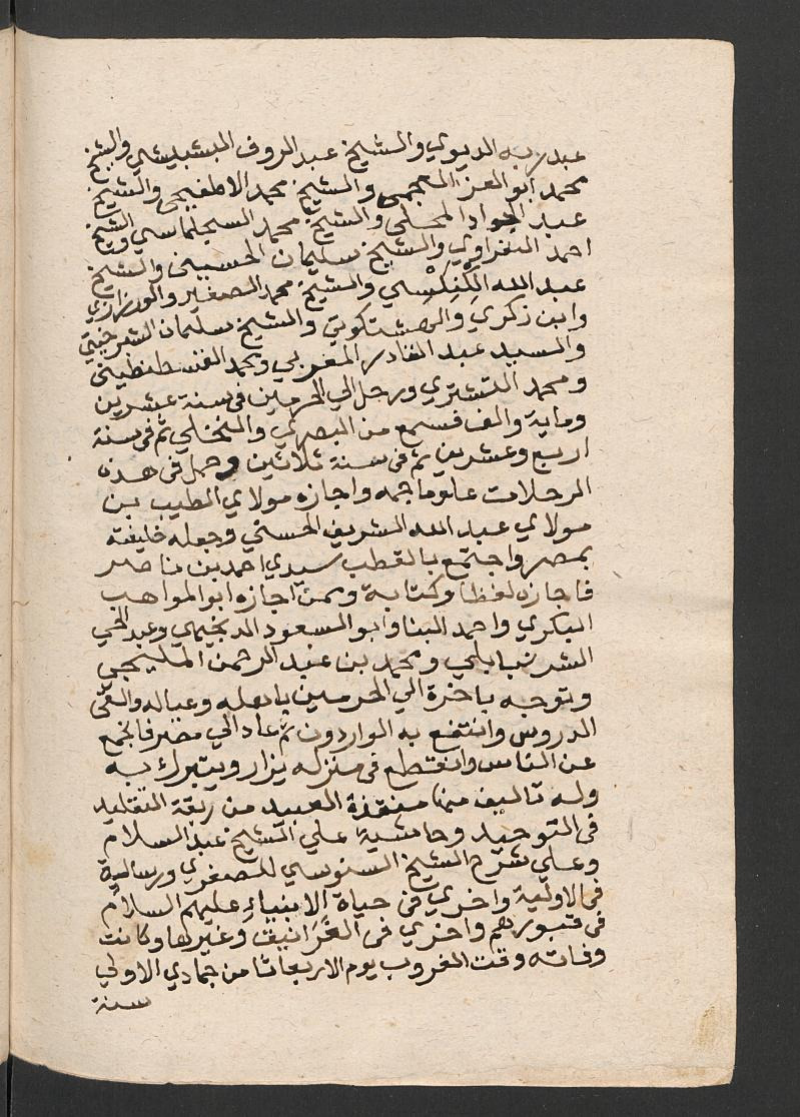 عبد ربه الديوي والشيخ عبد الروف البشبيشي والشيخ
محمد ابو العز العجمي والشيخ محمد الاطفيحي والشيخ
عبد الجواد المحلي والشيخ محمد السجلماسي والشيخ
احمد النفراوي والشيخ سليمان الحسيني والشيخ
عبد الله الكنكسي والشيخ محمد الصغير والورزازي
وابن زكري والهشتكوتي والشيخ سليمان الشبرخيتي
والسيد عبد القادر المغربي ومحمد القسطنطيني
ومحمد النشتري ورحل الي الحرمين في سنة عشرين
وماية والف فسمع من البصري والنخلي ثم في سنة
اربع وعشرين ثم في سنة ثلاثين وحمل في هذه
الرحلات علوما جمه واجازه مولاي الطيب بن
مولاي عبد الله الشريف الحسني وجعله خليفته
بمصر واجتمع بالقطب سيدي احمد بن ناصر
فاجازه لفظا وكتابة وممن اجازه ابو المواهب
البكري واحمد البنا وابو السعود الدنجيهي وعبد الحي
الشرنبابلي ومحمد بن عبد الرحمن المليجي
وتوجه باخرة الي الحرمين باهله وعياله والقي
الدروس وانتفع به الواردون ثم عاد الي مصر فانجمع
عن الناس وانقطع في منزله يزار ويتبرك به
وله تاليف منها منقذة العبيد من ربقة التقليد
في التوحيد وحاشية علي الشيخ عبد السلام
وعلي شرح الشيخ السنوسي للصغري ورسالية
في الاولية واخري في حياة الانبياء عليهم السلام
في قبورهم واخري في الغرانيق وغيرها وكانت
وفاته وقت الغروب يوم الاربعا ثامن جمادي الاولي
سنة